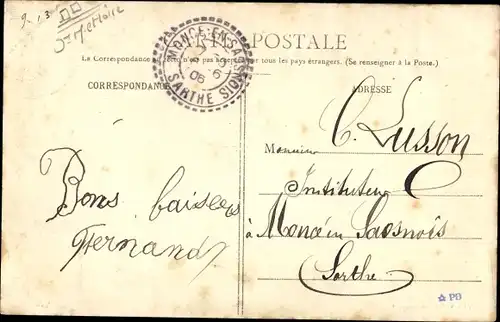 CARTE POSTALE
La Correspondance au recto n'est pas acceptée par tous les pays étrangers. (Se renseigner à la Poste.)
CORRESPONDANCE
ADRESSE
MONCÉ-EN-SAOSNOIS
06
SARTHE
C. Lusson
Monsieur
Instituteur
à Moncé en Saosnois
Sarthe
Bons baisers
Fernand
PB